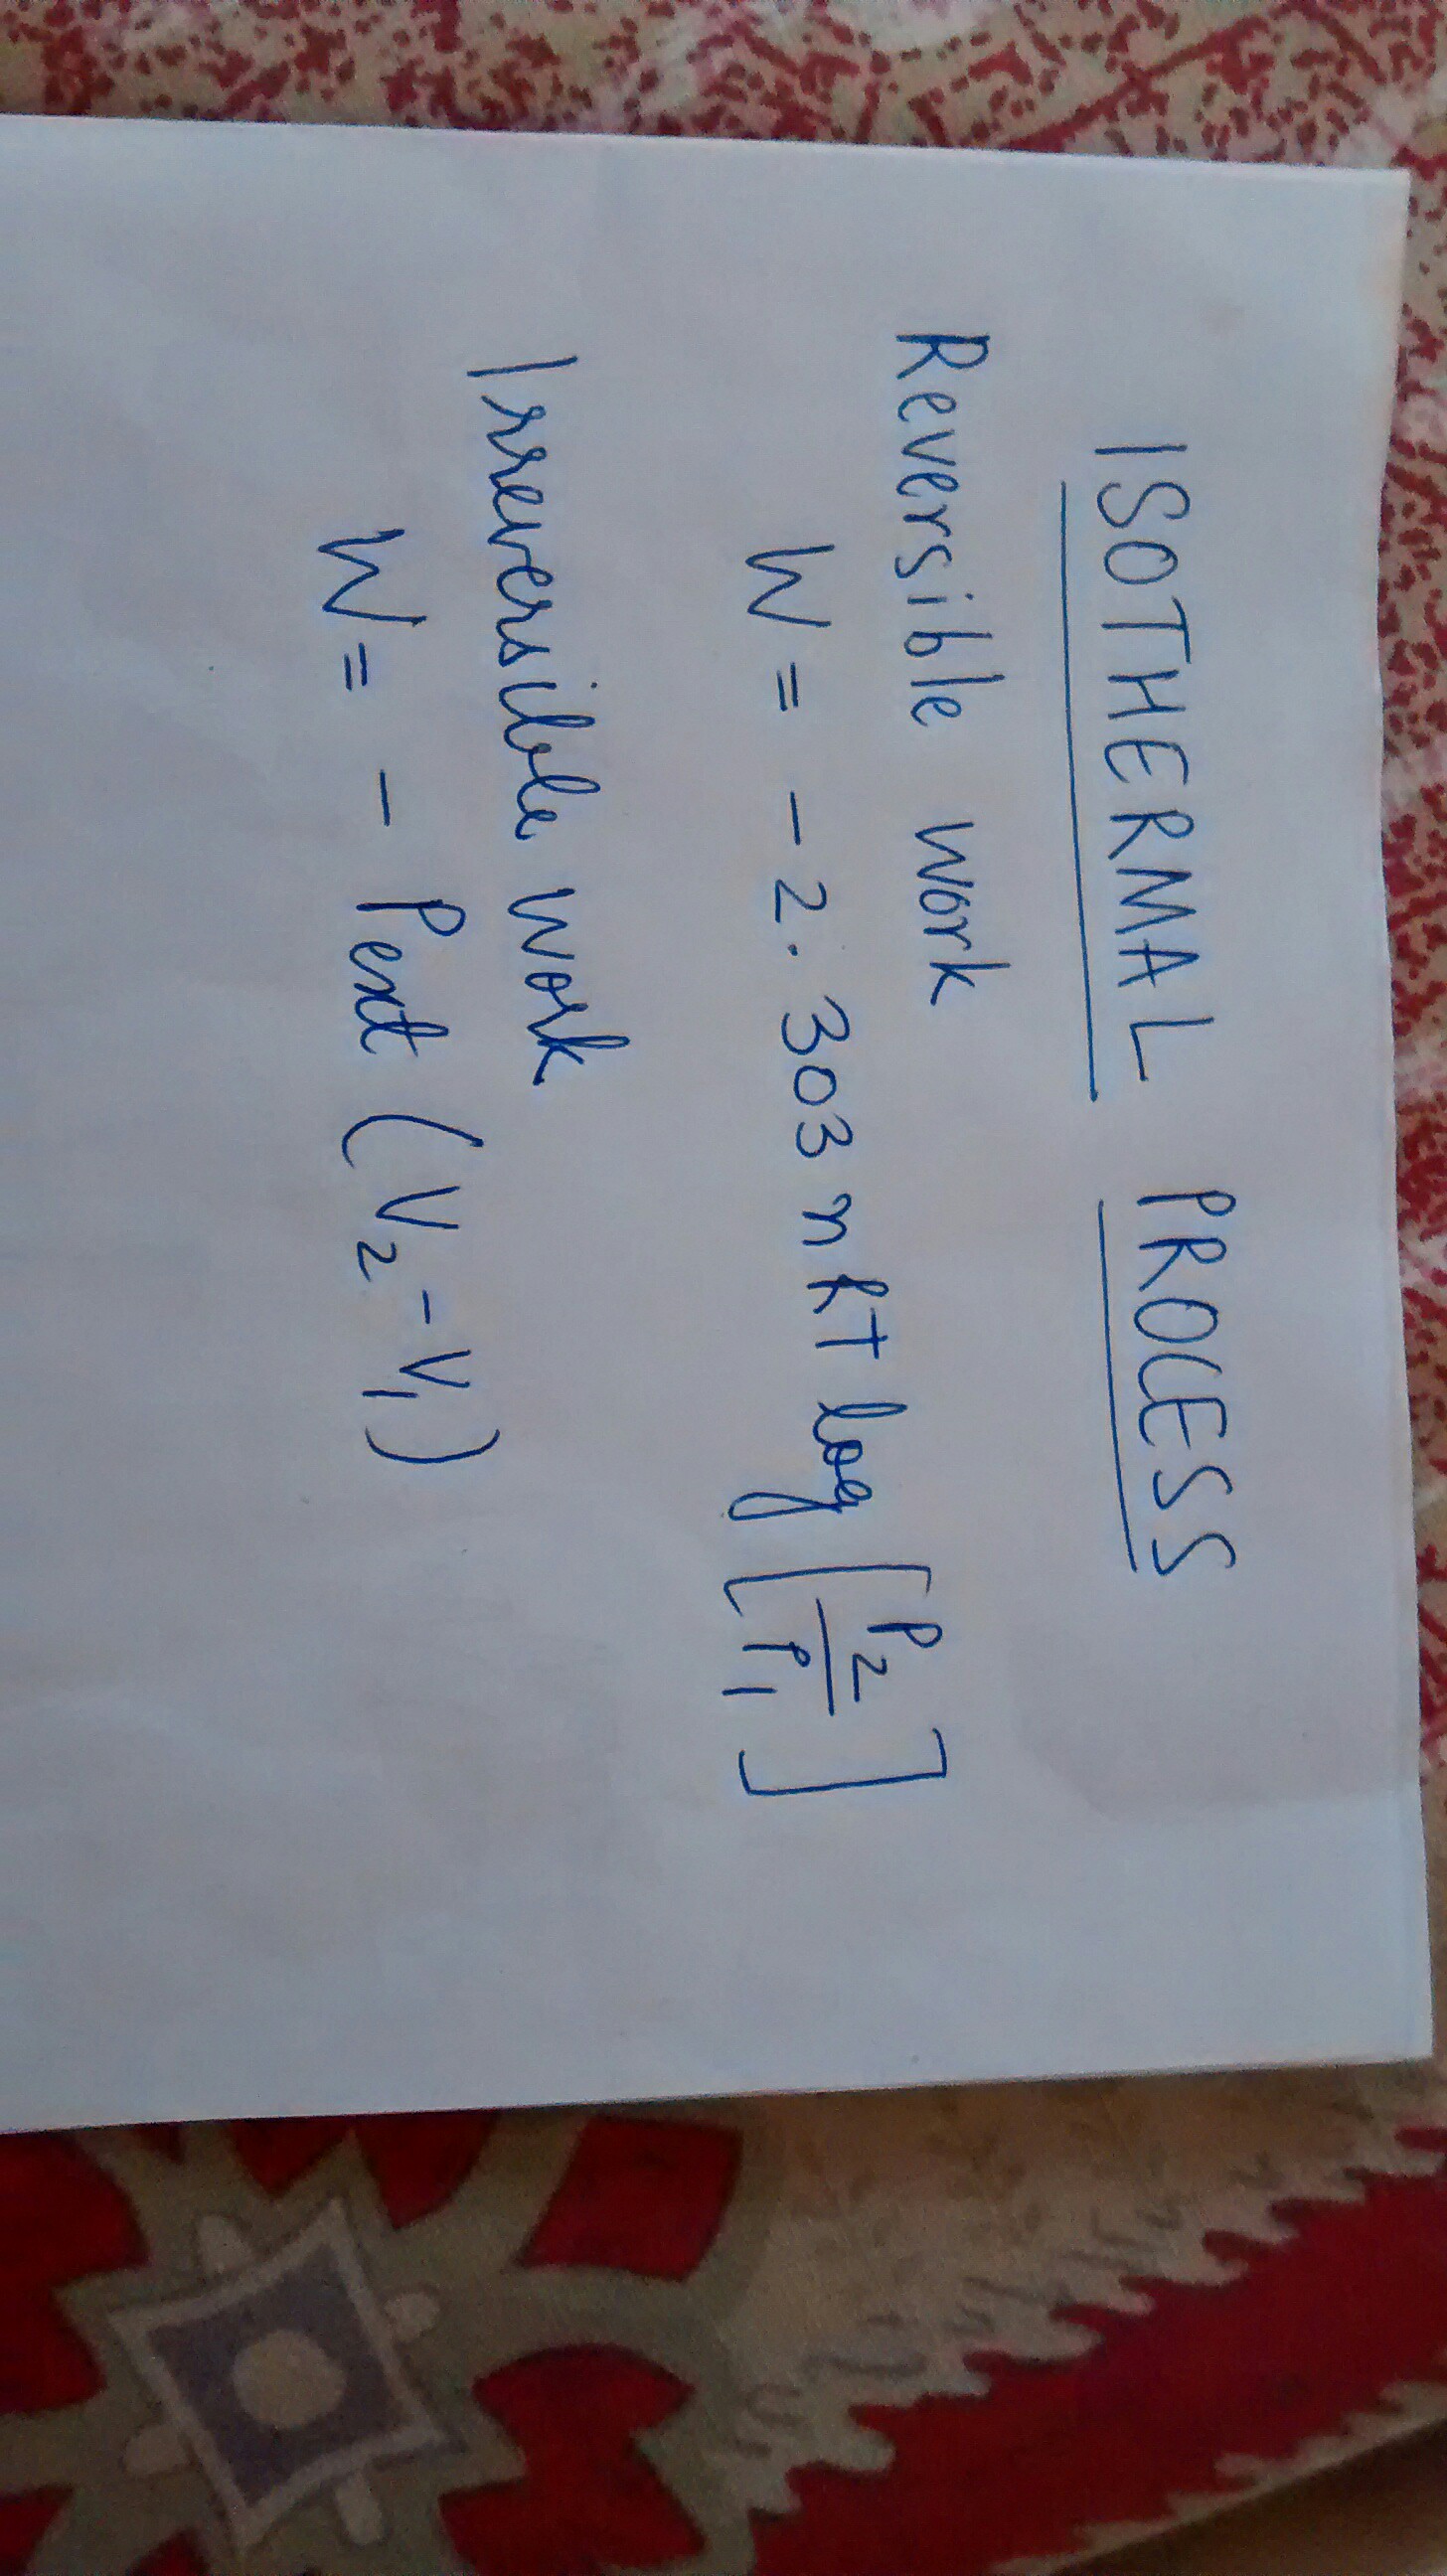 ISOTHERMAL PROCESS
Reversible work
W = - 2.303 nRT log [P2/P1]
Irreversible work
W = - Pext (V2 - V1)